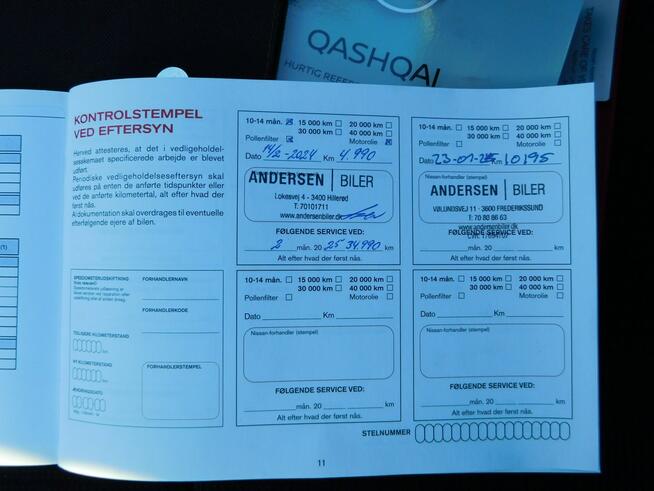 QASHQAI
HURTIG REFER
TAKES CARE OF
KONTROLSTEMPEL
VED EFTERSYN
Herved attesteres, at det i vedligeholdel-
sesskemaet specificerede arbejde er blevet
udført.
Periodiske vedligeholdelseseftersyn skal
udføres på enten de anførte tidspunkter eller
ved de anførte kilometertal, alt efter hvad der
først nås.
Al dokumentation skal overdrages til eventuelle
efterfølgende ejere af bilen.
SPEEDOMETERUDSKIFTNING
FORHANDLERNAVN
FORHANDLERKODE
TIDLIGERE KILOMETERSTAND
km
NY KILOMETERSTAND
km
ÆNDRINGSDATO
FORHANDLERSTEMPEL
10-14 mån. 15 000 km 20 000 km
30 000 km 40 000 km
Pollenfilter Motorolie
Dato 14/2-2024 Km 4.990
ANDERSEN BILER
Lokesvej 4 - 3400 Hillerød
T: 70101711
www.andersenbiler.dk
FØLGENDE SERVICE VED:
2 mån. 20 25 34.990 km
Alt efter hvad der først nås.
10-14 mån. 15 000 km 20 000 km
30 000 km 40 000 km
Pollenfilter Motorolie
Dato 23-01-25 Km 10195
Nissan-forhandler (stempel)
ANDERSEN BILER
VØLUNDSVEJ 11 - 3600 FREDERIKSSUND
T: 70 80 86 63
www.andersenbiler.dk
FØLGENDE SERVICE VED:
mån. 20 km
Alt efter hvad der først nås.
10-14 mån. 15 000 km 20 000 km
30 000 km 40 000 km
Pollenfilter Motorolie
Dato Km
Nissan-forhandler (stempel)
FØLGENDE SERVICE VED:
mån. 20 km
Alt efter hvad der først nås.
10-14 mån. 15 000 km 20 000 km
30 000 km 40 000 km
Pollenfilter Motorolie
Dato Km
Nissan-forhandler (stempel)
FØLGENDE SERVICE VED:
mån. 20 km
Alt efter hvad der først nås.
STELNUMMER
11